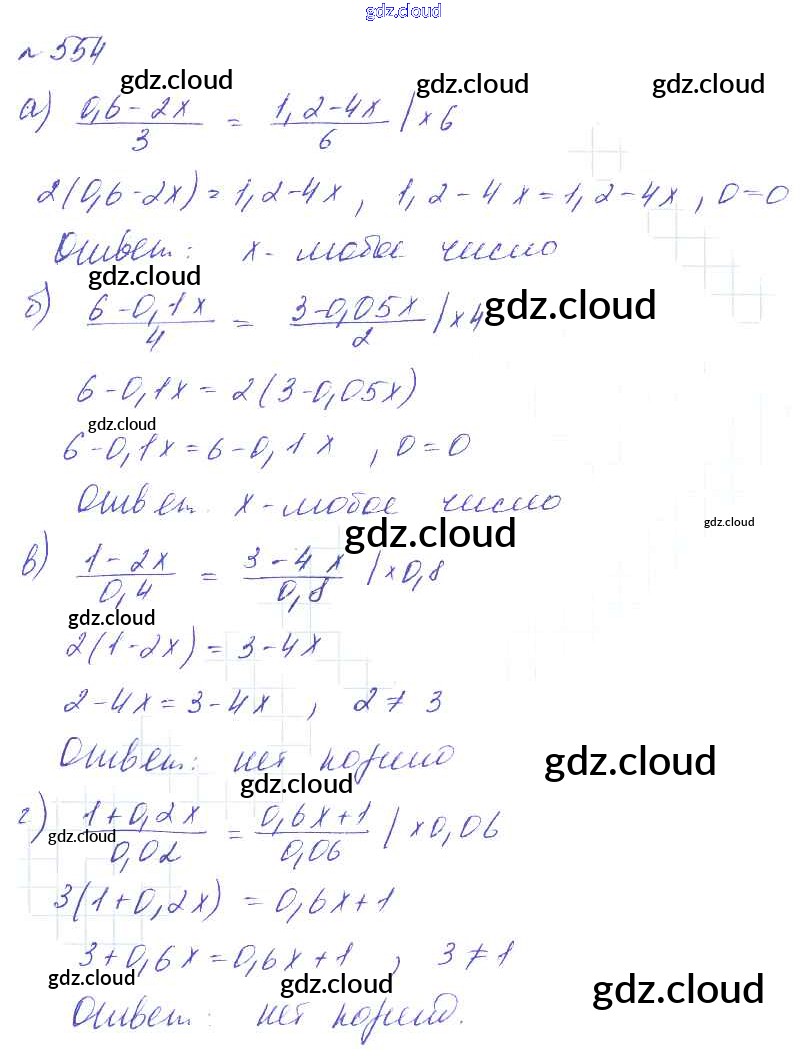 gdz.cloud
№ 554
gdz.cloud gdz.cloud gdz.cloud
а) (0,6-2x)/3 = (1,2-4x)/6 | ×6
2(0,6-2x)=1,2-4x, 1,2-4x=1,2-4x, 0=0
Ответ: x-любое число
gdz.cloud
б) (6-0,1x)/4 = (3-0,05x)/2 | ×4
gdz.cloud
6-0,1x=2(3-0,05x)
gdz.cloud
6-0,1x=6-0,1x, 0=0
Ответ. x-любое число
gdz.cloud gdz.cloud
в) (1-2x)/0,4 = (3-4x)/0,8 | ×0,8
gdz.cloud
2(1-2x)=3-4x
2-4x=3-4x, 2≠3
Ответ: нет корней
gdz.cloud gdz.cloud
г) (1+0,2x)/0,02 = (0,6x+1)/0,06 | ×0,06
gdz.cloud
3(1+0,2x) = 0,6x+1
3+0,6x=0,6x+1, 3≠1
gdz.cloud gdz.cloud gdz.cloud
Ответ: нет корней.